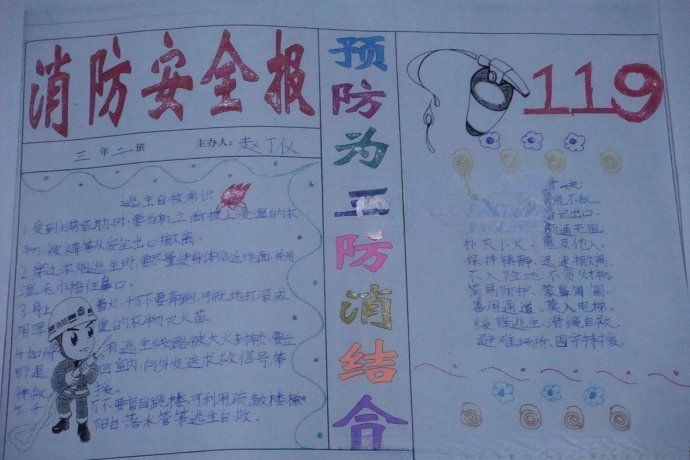 消防安全报
三年二班 主办人：赵丁仪
逃生自救常识
1.受到火势威胁时，要当机立断披上浸湿的衣
物、被褥等从安全出口撤离。
2.穿过水烟逃生时，要尽量使身体贴近地面，并用
湿毛巾捂住鼻口。
3.身上着火，千万不要奔跑，可就地打滚或
用厚重的衣物灭火苗。
有逃生线路被大火封锁，要立
即退回室内，向外发送求救信号，等
待救援。
5.千万不要盲目跳楼，可利用疏散楼梯、
阳台、落水管等逃生自救。
预防为主防消结合
119
出口
扑灭小火，惠及他人。
保持镇静，迅速撤离。
不入险地，不贪财物。
简易防护，蒙鼻匍匐。
善用通道，莫入电梯。
缓降逃生，滑绳自救。
避难场所，固守待援。